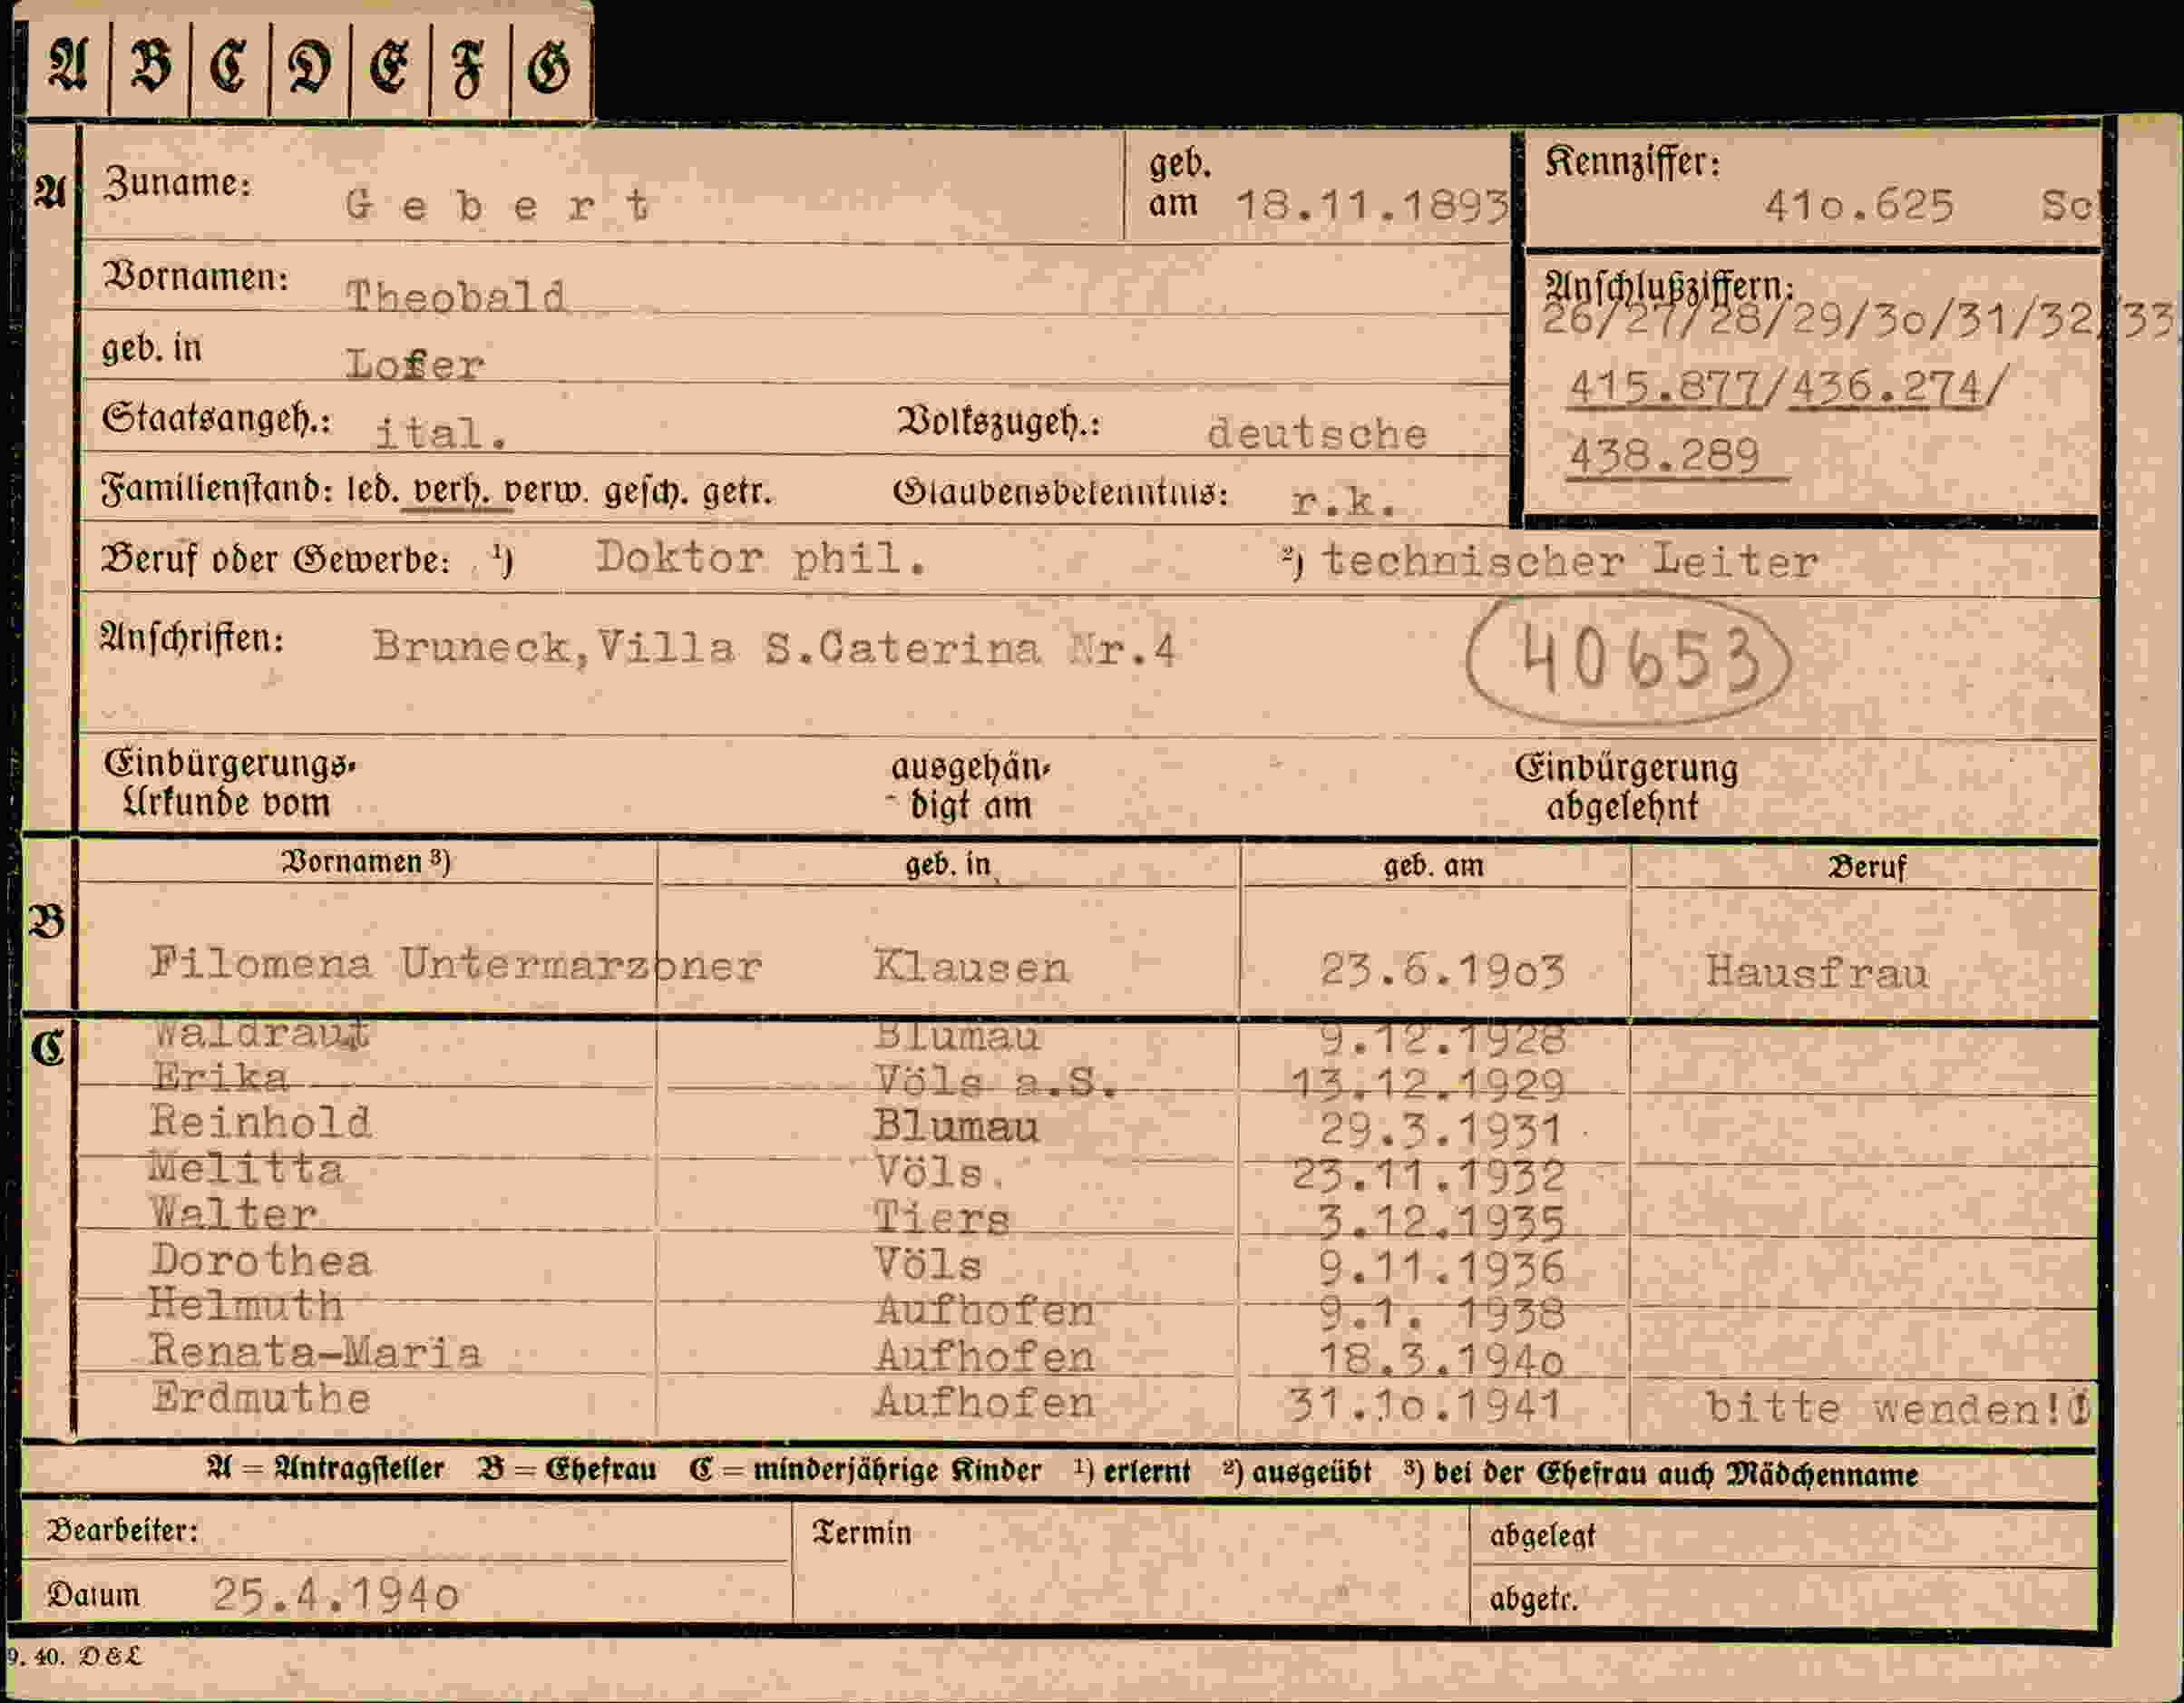 A B C D E F G
A Zuname: Gebert geb. am 18.11.1893 Kennziffer: 41o.625
Vornamen: Theobald Anschlußziffern: 26/27/28/29/3o/31/32/33
geb. in Lofer 415.877/436.274/
Staatsangeh.: ital. Volkszugeh.: deutsche 438.289
Familienstand: led. verh. verw. gesch. getr. Glaubensbekenntnis: r.k.
Beruf oder Gewerbe: ¹) Doktor phil. ²) technischer Leiter
Anschriften: Bruneck,Villa S.Caterina Nr.4 40653
Einbürgerungs- ausgehän- Einbürgerung
Urkunde vom digt am abgelehnt
Vornamen ³) geb. in geb. am Beruf
B Filomena Untermarzoner Klausen 23.6.19o3 Hausfrau
C Waldraut Blumau 9.12.1928
Erika Völs a.S. 13.12.1929
Reinhold Blumau 29.3.1931
Melitta Völs 23.11.1932
Walter Tiers 3.12.1935
Dorothea Völs 9.11.1936
Helmuth Aufhofen 9.1. 1938
Renata-Maria Aufhofen 18.3.194o
Erdmuthe Aufhofen 31.1o.1941 bitte wenden!
A = Antragsteller B = Ehefrau C = minderjährige Kinder ¹) erlernt ²) ausgeübt ³) bei der Ehefrau auch Mädchenname
Bearbeiter: Termin abgelegt
Datum 25.4.194o abgetr.
9. 40. D & L